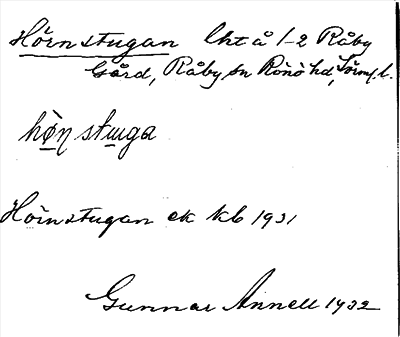 Hörnstugan lht å 1-2 Råby
Gård, Råby sn Rönö hd, Sörml. l.
hö̀ꞃ stuga
Hörnstugan ek kb 1931
Gunnar Annell 1932